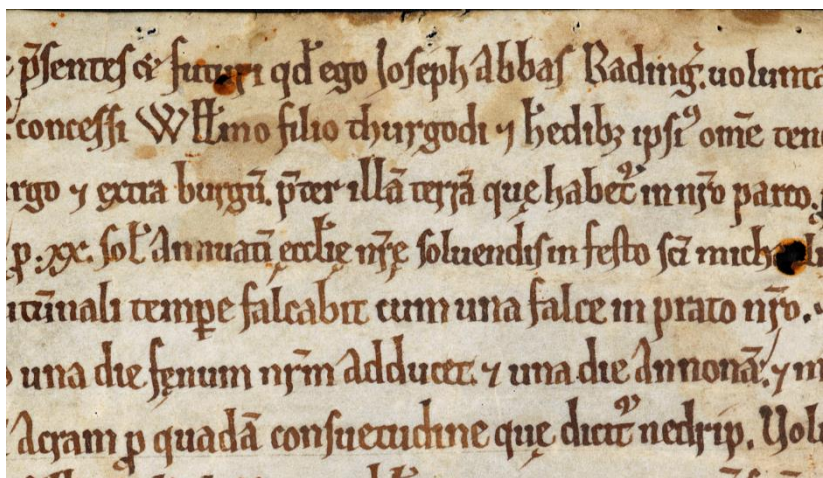 p̄sentes & futuri qđ ego Joseph Abbas Rading̃. uolunta
concessi Wiłłmo filio thurgodi ⁊ ħedibꝫ ipsiꝰ om̄e ten
rgo ⁊ extra burgū. p̄ter illā terrā quę habet᷑ in nr̄o parco.
ꝑ .xx. soł Annuatī ęccłię nr̄ę soluendis in festo sc̄i mich
tūnali temꝑe falcabit cum una falce in prato nr̄o.
una die fęnum nr̄m Adducet. ⁊ una die Annonā. ⁊ m
Acram ꝓ quadā consuetudine quę dicit᷑ nedrip. Uol